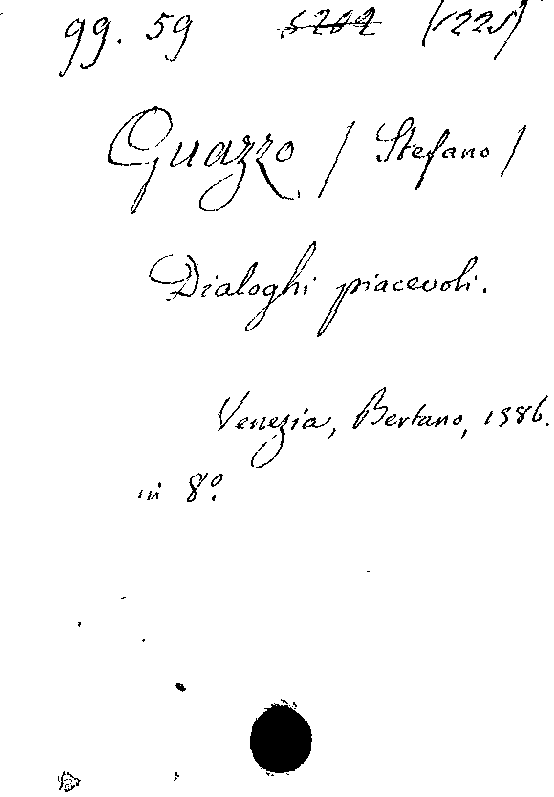 99. 59 5202 (225)
Guazzo / Stefano /
Dialoghi piacevoli.
Venezia, Bertano, 1586.
in 8º